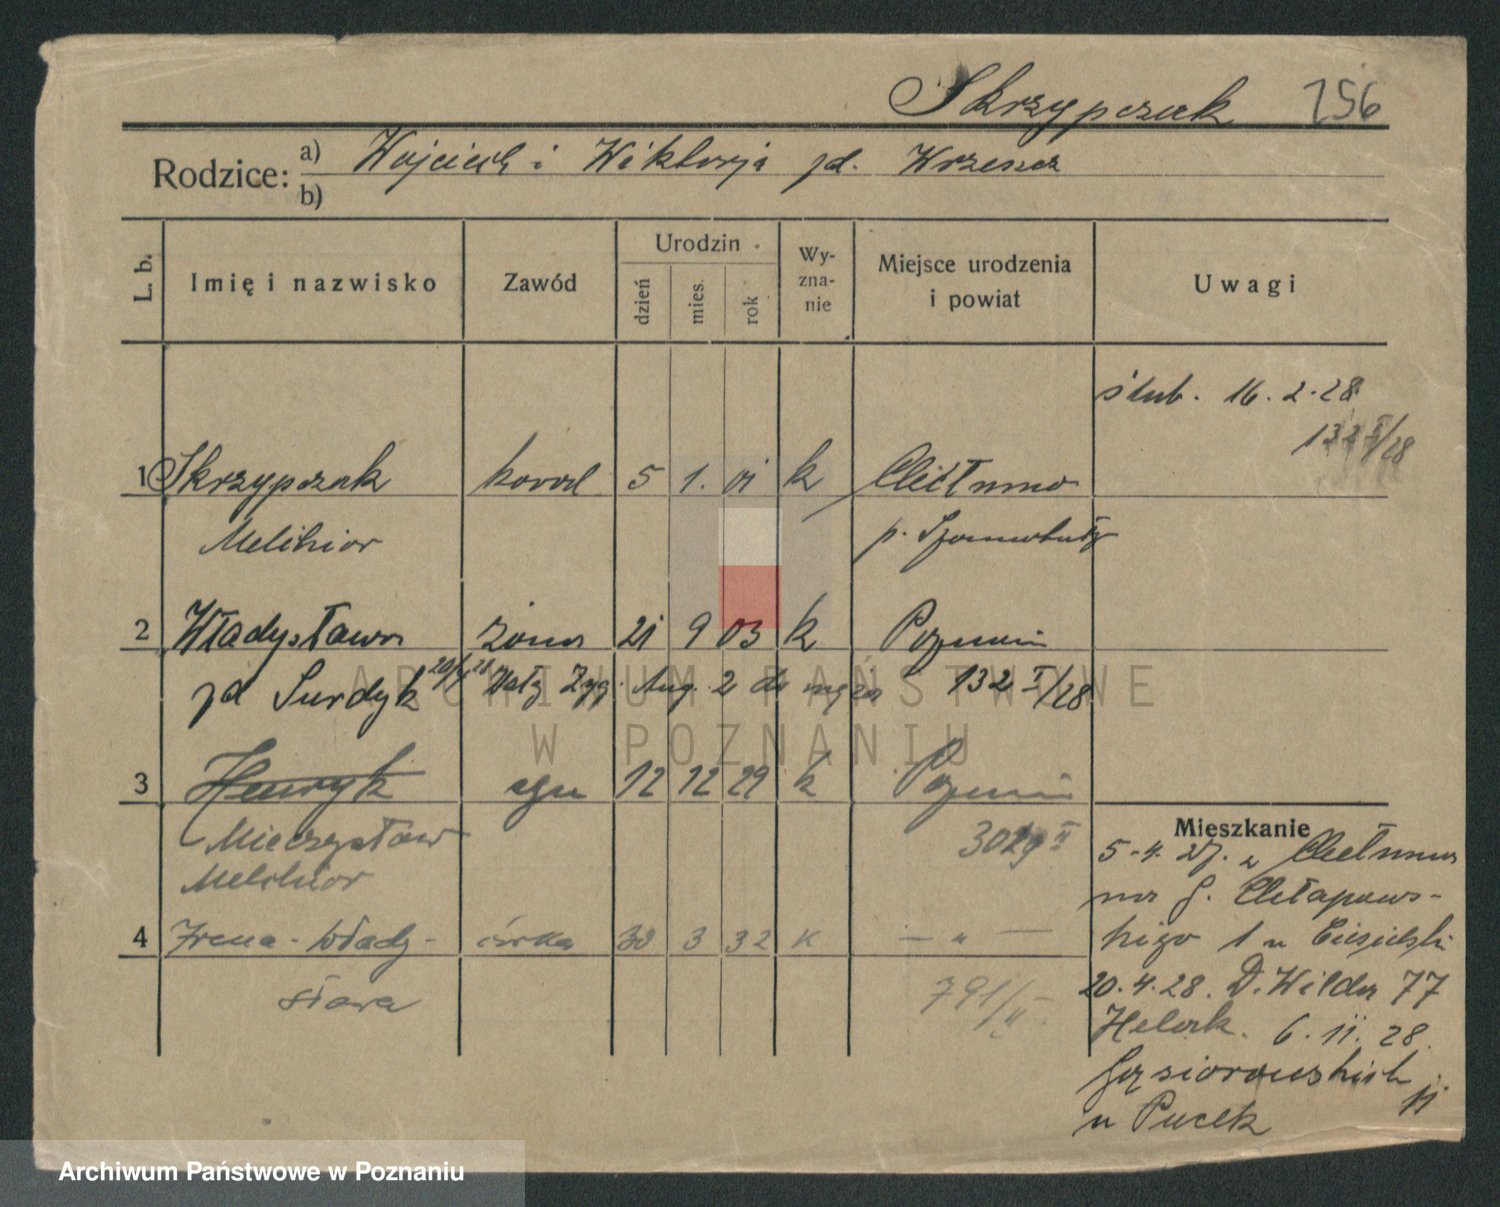 Skrzypczak 256
Rodzice: a) Wojciech i Wiktorja zd. Wrzeszcz
b)
L. b. Imię i nazwisko Zawód Urodzin dzień mies. rok Wy-zna-nie Miejsce urodzenia i powiat Uwagi
ślub. 16.2.28
132 I/28
1 Skrzypczak kowal 5 1. 01 k Chełmno
Melchior p. Szamotuły
2 Władysława żona 21 9 03 k Poznań
zd Surdyk 20/4 28 Wały Zyg. Aug. 2 do męża 132 I/28
3 Henryk syn 12 12 29 k Poznań
Mieczysław 3029 II
Melchior
4 Irena-Włady- córka 30 3 32 k — " —
sława 791/II
Mieszkanie
5.4.27. z Chełmna
na G. Chłapows-
kiego 1 u Ciesielski
20.4.28. D. Wilda 77
Helak. 6.11.28.
Gąsiorowskich 11
u Pucek
ARCHIWUM PAŃSTWOWE
W POZNANIU
Archiwum Państwowe w Poznaniu